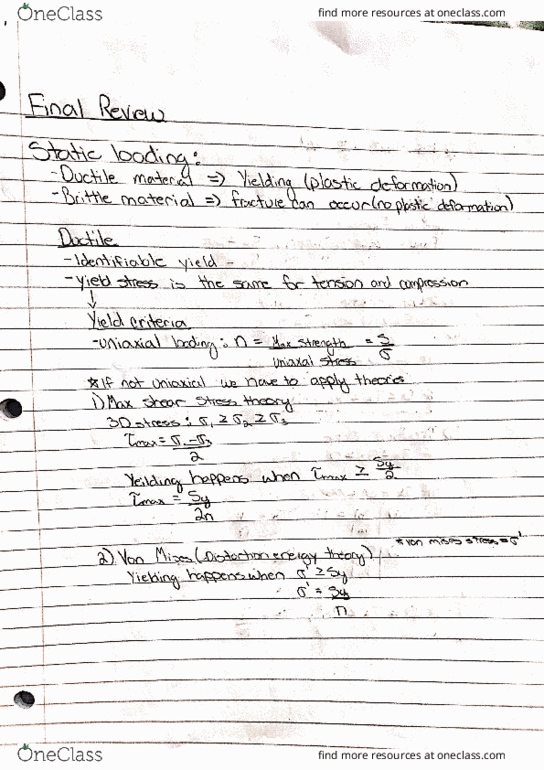 OneClass
find more resources at oneclass.com
Final Review
Static loading:
-Ductile material => Yielding (plastic deformation)
-Brittle material => fracture can occur (no plastic deformation)
Ductile
-Identifiable yield -
-yield stress is the same for tension and compression
↓
Yield criteria
-uniaxial loading: n = Max strength / uniaxial stress = S/σ
*if not uniaxial we have to apply theories
1) Max shear stress theory
3D stress: σ₁ ≥ σ₂ ≥ σ₃
τmax = σ₁-σ₃ / 2
Yeilding happens when τmax ≥ Sy/2
τmax = Sy/2n
*von mises stress = σ'
2) Von Mises (Distortion energy theory)
Yielding happens when σ' ≥ Sy
σ' = Sy/n
OneClass
find more resources at oneclass.com